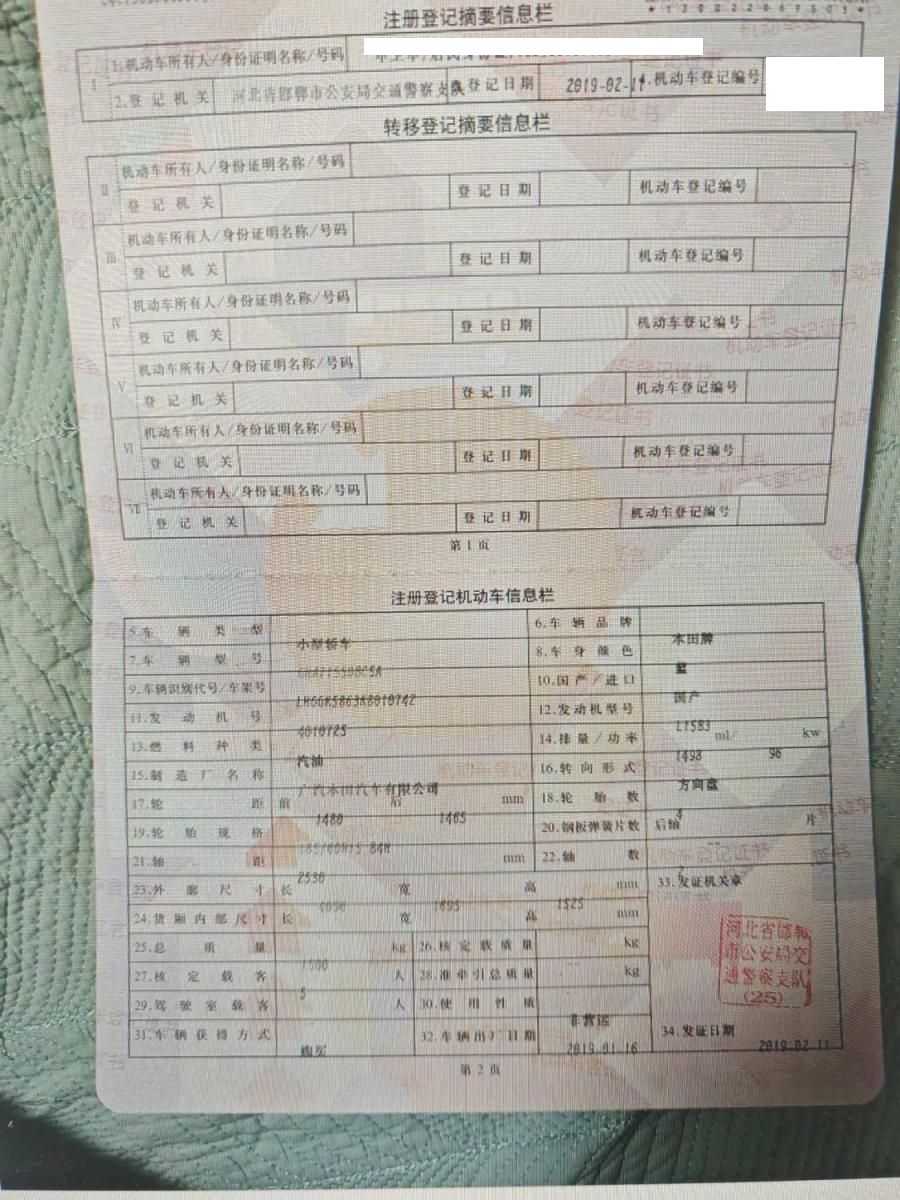 注册登记摘要信息栏
I
1.机动车所有人/身份证明名称/号码
2.登记机关 河北省邯郸市公安局交通警察支队 登记日期 2019-02-11 4.机动车登记编号
转移登记摘要信息栏
II 机动车所有人/身份证明名称/号码
登记机关 登记日期 机动车登记编号
III 机动车所有人/身份证明名称/号码
登记机关 登记日期 机动车登记编号
IV 机动车所有人/身份证明名称/号码
登记机关 登记日期 机动车登记编号
V 机动车所有人/身份证明名称/号码
登记机关 登记日期 机动车登记编号
VI 机动车所有人/身份证明名称/号码
登记机关 登记日期 机动车登记编号
VII 机动车所有人/身份证明名称/号码
登记机关 登记日期 机动车登记编号
第1页
注册登记机动车信息栏
5.车辆类型 小型轿车 6.车辆品牌 本田牌
7.车辆型号 8.车身颜色 蓝
9.车辆识别代号/车架号 10.国产/进口 国产
11.发动机号 4010725 12.发动机型号 L15B3
13.燃料种类 汽油 14.排量/功率 1498 ml/ 96 kw
15.制造厂名称 广汽本田汽车有限公司 16.转向形式 方向盘
17.轮距 前 1480 后 1465 mm 18.轮胎数 4
19.轮胎规格 185/60R15 84H 20.钢板弹簧片数 后轴 -- 片
21.轴距 2530 mm 22.轴数
23.外廓尺寸 长 宽 1695 高 1525 mm 33.发证机关章
24.货厢内部尺寸 长 宽 高 mm
河北省邯郸
市公安局交
通警察支队
(25)
25.总质量 1500 kg 26.核定载质量 -- kg
27.核定载客 5 人 28.准牵引总质量 kg
29.驾驶室载客 人 30.使用性质 非营运
31.车辆获得方式 购买 32.车辆出厂日期 2019-01-16 34.发证日期 2019-02-11
第2页